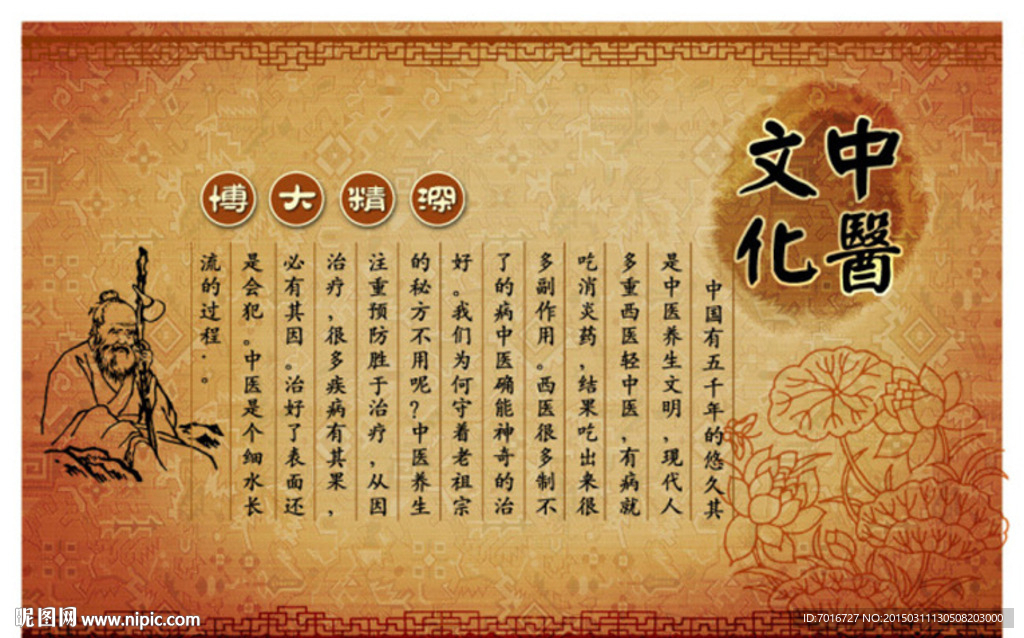 中醫
文化
博大精深
中国有五千年的悠久其
是中医养生文明，现代人
多重西医轻中医，有病就
吃消炎药，结果吃出来很
多副作用。西医很多制不
了的病中医确能神奇的治
好。我们为何守着老祖宗
的秘方不用呢？中医养生
注重预防胜于治疗，从因
治疗，很多疾病有其果，
必有其因。治好了表面还
是会犯。中医是个细水长
流的过程．。
昵图网 www.nipic.com
ID:7016727 NO:20150311130508203000